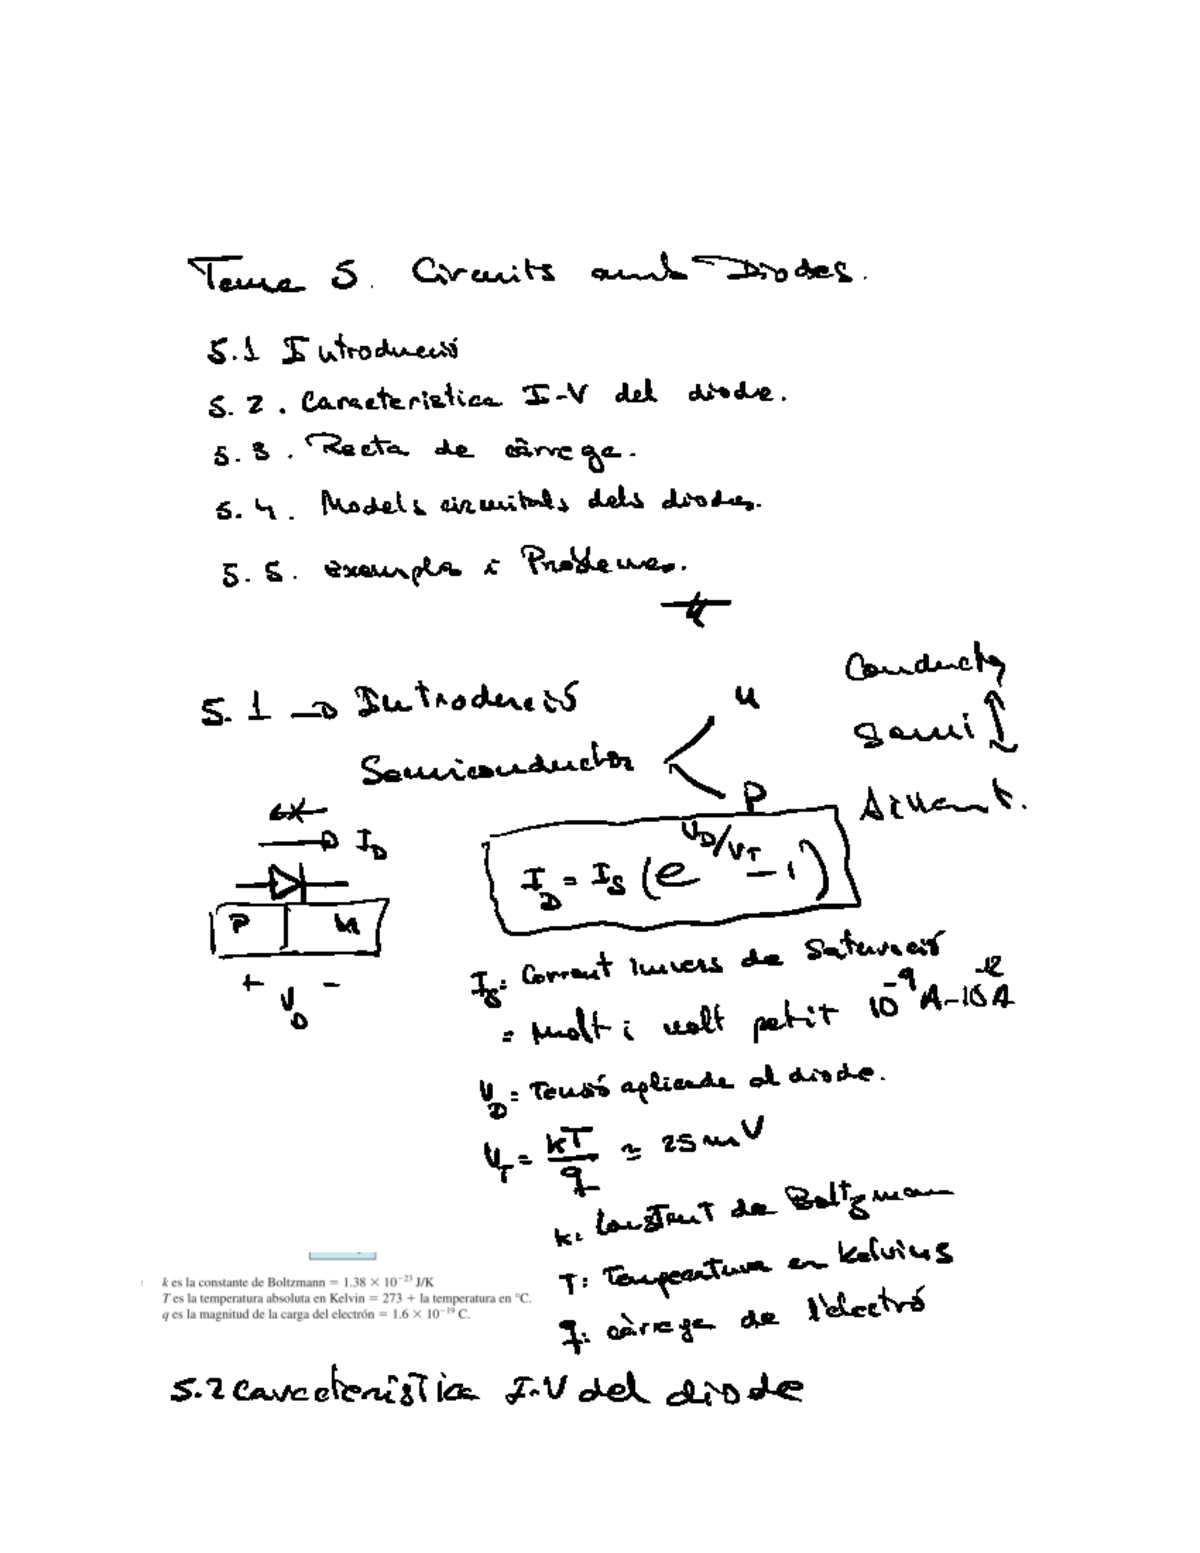 Tema 5. Circuits amb Diodes.
5.1 Introducció
5.2. Característica I-V del diode.
5.3. Recta de càrrega.
5.4. Models circuitals dels diodes.
5.5. exempla i Problemes.
5.1 → Introducció
Semiconductor
n
P
Conductor
Semi
Aïllant.
I_D
P n
+ V_D -
I_D = I_S (e^{V_D/V_T} - 1)
I_S: Corrent Invers de Saturació
= molt i molt petit 10^{-9} A - 10^{-12} A
V_D = Tensió aplicada al diode.
V_T = kT/q ≃ 25 mV
k: Constant de Boltzman
T: Temperatura en Kelvins
q: càrrega de l'electró
k es la constante de Boltzmann = 1.38 × 10^{-23} J/K
T es la temperatura absoluta en Kelvin = 273 + la temperatura en °C.
q es la magnitud de la carga del electrón = 1.6 × 10^{-19} C.
5.2 Característica I-V del diode